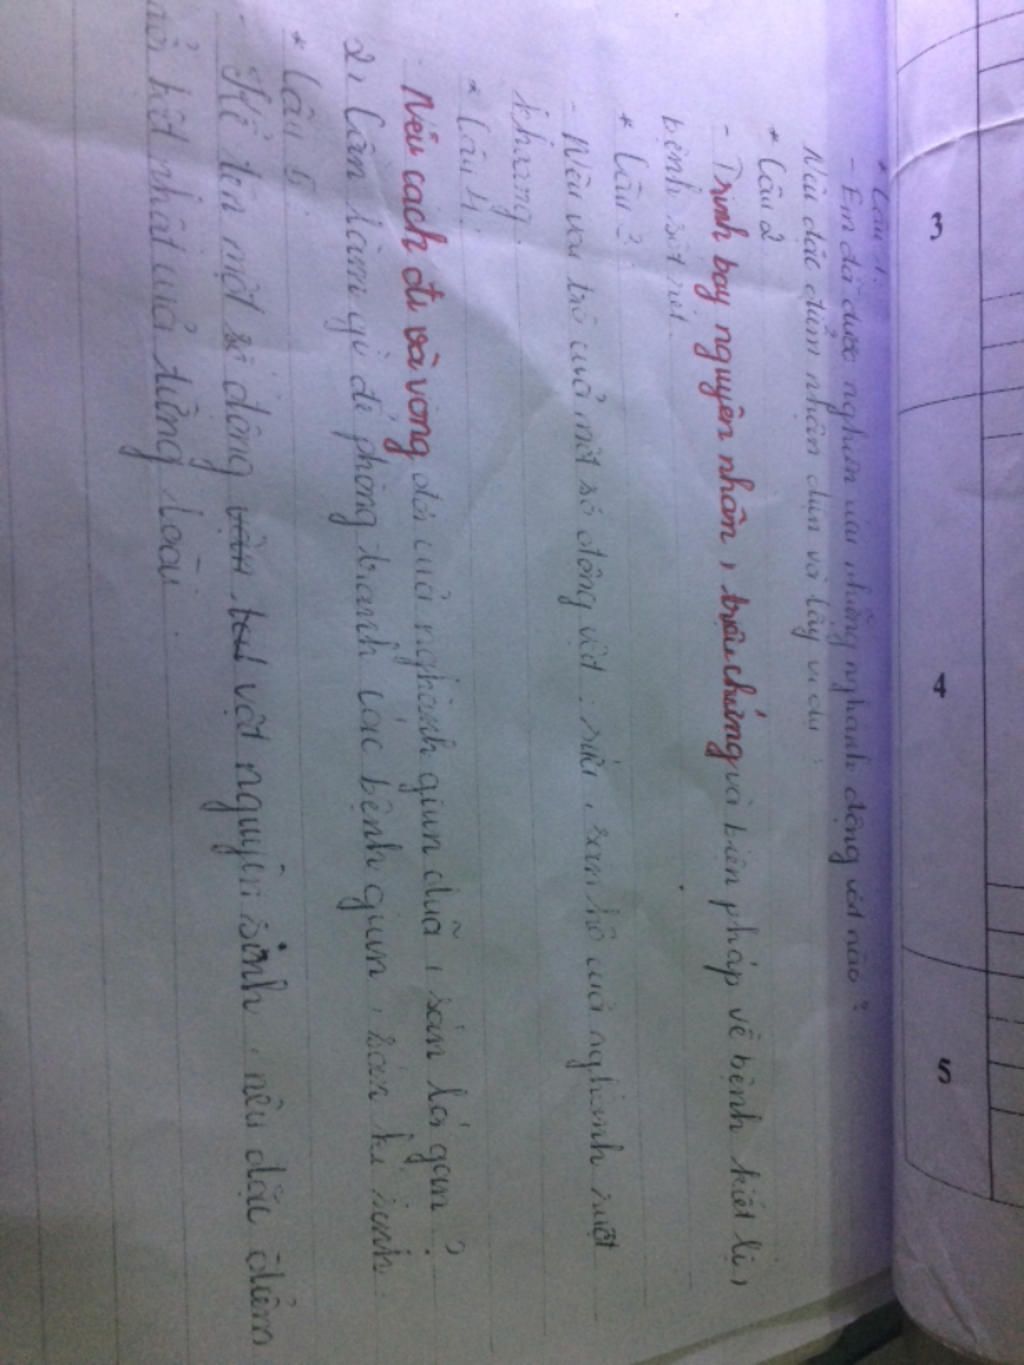 * Câu 1:
- Em đã được nghiên cứu những nghanh động vật nào?
Nêu đặc điểm nhận diện và lấy ví dụ?
* Câu 2
- Trình bày nguyên nhân, triệu chứng và biên pháp về bệnh kiết lị,
bệnh sốt rét.
* Câu 3
- Nêu vai trò của một số động vật: sứa, san hô của nghành ruột
khoang.
* Câu 4:
- Nêu cách di và vòng đời của nghành giun đũa, sán lá gan?
2, Cần làm gì để phòng tranh các bệnh giun, sán kí sinh.
* Câu 5:
- Kể tên một số động vật nguyên sinh, nêu đặc điểm
nhất của từng loài.
3
4
5